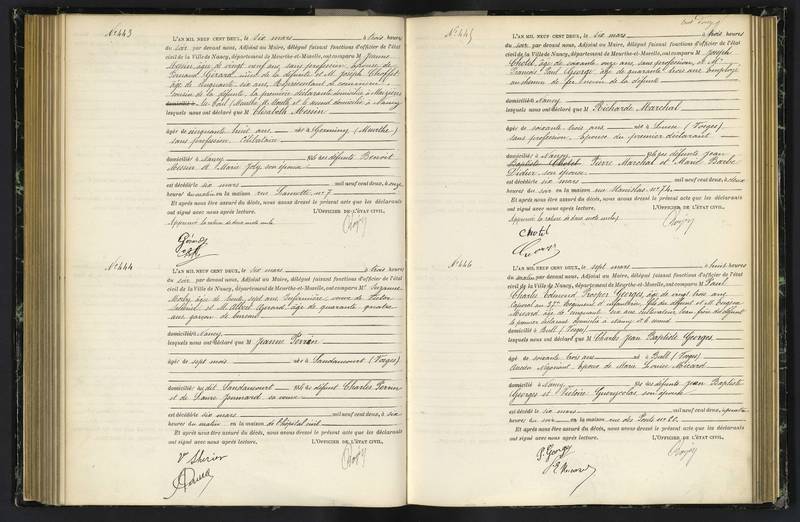 No 443
L'AN MIL NEUF CENT DEUX, le six mars à trois heures
du soir par devant nous, Adjoint au Maire, délégué faisant fonctions d'officier de l'état
civil de la Ville de Nancy, département de Meurthe-et-Moselle, ont comparu M Jeanne
Messin, âgée de vingt neuf ans, sans profession, épouse de
Gérard nièce de la défunte et M. Joseph
âgé de cinquante six ans, Représentant de commerce
cousin de la défunte, la première déclarante domiciliée à
domiciliés à et le second domicilié à Nancy
lesquels nous ont déclaré que M Elisabeth Messin
âgée de cinquante huit ans née à (Meurthe)
sans profession Célibataire
domiciliée à Nancy fille des défunts Benoit
Messin et Marie Joly son épouse
est décédée le six mars mil neuf cent deux, à onze
heures du matin en la maison rue no 7
Et après nous être assuré du décès, nous avons dressé le présent acte que les déclarants
ont signé avec nous après lecture. L'OFFICIER DE L'ÉTAT CIVIL,
No 444
L'AN MIL NEUF CENT DEUX, le six mars à trois heures
du soir par devant nous, Adjoint au Maire, délégué faisant fonctions d'officier de l'état
civil de la Ville de Nancy, département de Meurthe-et-Moselle, ont comparu Me Suzanne
âgée de trente sept ans Infirmière, veuve de Victor
et M. Albert Gérard âgé de quarante quatre
ans garçon de bureau
domiciliés à Nancy
lesquels nous ont déclaré que M Jeanne Perrin
âgée de sept mois née à Sandaucourt (Vosges)
domiciliée au dit Sandaucourt fille de défunt Charles Perrin
et de Laure sa veuve
est décédée le six mars mil neuf cent deux, à six
heures du matin en la maison de l'hôpital civil
Et après nous être assuré du décès, nous avons dressé le présent acte que les déclarants
ont signé avec nous après lecture. L'OFFICIER DE L'ÉTAT CIVIL,
No 445
L'AN MIL NEUF CENT DEUX, le six mars à trois heures
du soir par devant nous, Adjoint au Maire, délégué faisant fonctions d'officier de l'état
civil de la Ville de Nancy, département de Meurthe-et-Moselle, ont comparu M Joseph
Chotel, âgé de soixante onze ans, sans profession, et M.
François Paul George âgé de quarante trois ans employé
au chemin de fer neveu de la défunte
domiciliés à Nancy
lesquels nous ont déclaré que M Richarde Marchal
âgée de soixante trois ans née à (Vosges)
sans profession, épouse du premier déclarant
domiciliée à Nancy fille des défunts Jean
Baptiste Chotel Pierre Marchal et Marie Barbe
Didier son épouse
est décédée le six mars mil neuf cent deux, à deux
heures du soir en la maison rue Stanislas no 74
Et après nous être assuré du décès, nous avons dressé le présent acte que les déclarants
ont signé avec nous après lecture. L'OFFICIER DE L'ÉTAT CIVIL,
Chotel
No 446
L'AN MIL NEUF CENT DEUX, le sept mars à huit heures
du matin par devant nous, Adjoint au Maire, délégué faisant fonctions d'officier de l'état
civil de la Ville de Nancy, département de Meurthe-et-Moselle, ont comparu M Paul
Charles Edmond Prosper Georges, âgé de vingt trois ans
Caporal au 37me Régiment d'infanterie, fils du défunt et M. Eugène
Micard âgé de cinquante six ans cultivateur, beau frère du défunt
le premier déclarant domicilié à Nancy et le second
domicilié à Bult (Vosges)
lesquels nous ont déclaré que M Charles Jean Baptiste Georges
âgé de soixante trois ans né à Bult (Vosges)
Ancien Négociant époux de Marie Louise Micard
domicilié à Nancy fils des défunts Jean Baptiste
Georges et Victoire son épouse
est décédé le six mars mil neuf cent deux, à quatre
heures du soir en la maison rue des Ponts no 20
Et après nous être assuré du décès, nous avons dressé le présent acte que les déclarants
ont signé avec nous après lecture. L'OFFICIER DE L'ÉTAT CIVIL,
P. Georges